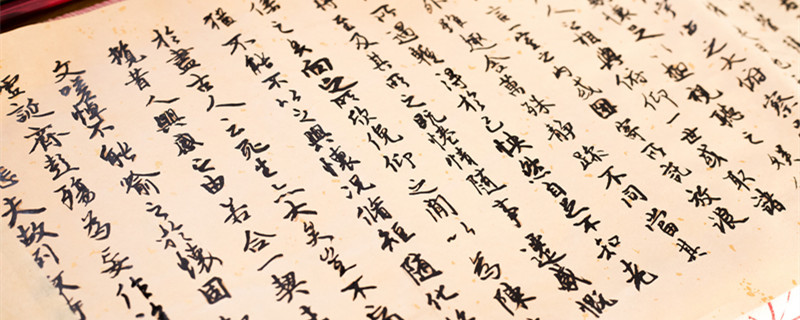 宙之大俯察
足以極視聽之娛
人之相與俯仰一世或取諸
言一室之內或因寄所託放浪
外雖趣舍萬殊靜躁不同當其
所遇暫得於己快然自足不知老
將至及其所之既惓情隨事遷感慨
係之矣向之所欣俛仰之閒以為陳
猶不能不以之興懷況脩短隨化終
於盡古人云死生亦大矣豈不痛
攬昔人興感之由若合一契未
文嗟悼不能喻之於懷固
虛誕齊彭殤為妄作後
悲夫故列敘時